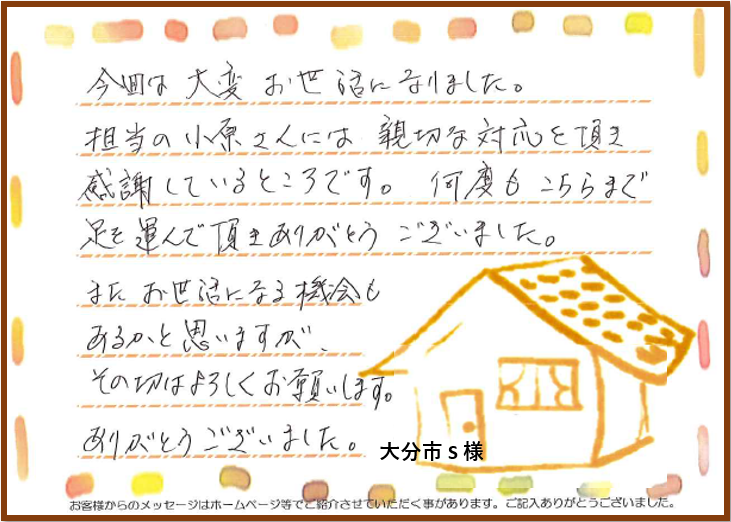 今回は大変お世話になりました。
担当の小原さんには親切な対応を頂き
感謝しているところです。何度もこちらまで
足を運んで頂きありがとうございました。
またお世話になる機会も
あるかと思いますが、
その切はよろしくお願いします。
ありがとうございました。
大分市 S 様
お客様からのメッセージはホームページ等でご紹介させていただく事があります。ご記入ありがとうございました。